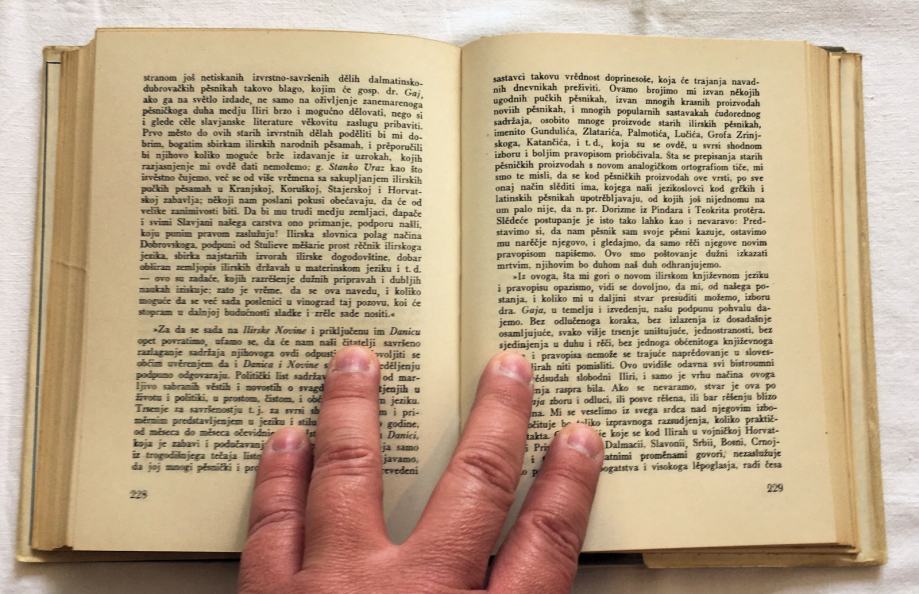 stranom još netiskanih izvrstno-savršenih dělih dalmatinsko-
dubrovačkih pěsnikah takovo blago, kojim će gosp. dr. Gaj,
ako ga na světlo izdade, ne samo na oživljenje zanemarenoga
pěsničkoga duha medju Iliri brzo i mogućno dělovati, nego si
i glede cěle slavjanske literature věkovitu zaslugu pribaviti.
Prvo město do ovih starih izvrstnih dělah poděliti bi mi do-
brim, bogatim sbirkam ilirskih narodnih pěsamah, i prěporučili
bi njihovo koliko moguće brže izdavanje iz uzrokah, kojih
razjasnjenje mi ovdě dati nemožemo; g. Stanko Uraz kao što
izvěstno čujemo, već se od više vrěmena sa sakupljanjem ilirskih
pučkih pěsamah u Kranjskoj, Koruškoj, Štajerskoj i Horvat-
skoj zabavlja; někoji nam poslani pokusi oběcavaju, da će od
velike zanimivosti biti. Da bi mu trudi medju zemljaci, dapače
i svimi Slavjani našega carstva ono priznanje, podporu našli,
koju punim pravom zaslužuju! Ilirska slovnica polag načina
Dobrovskoga, podpuni od Štulieve měšarie prost rěčnik ilirskoga
jezika, sbirka najstarih izvorah ilirske dogodovštine, dobar
obširan zemljopis ilirskih državah u materinskom jeziku i t. d.
— ovo su zadaće, kojih razrěšenje dužnih pripravah i dubljih
naukah iziskuje; zato je vrěme, da se ova navedu, i koliko
moguće da se već sada poslenici u vinograd taj pozovu, koi će
stopram u dalnjoj budućnosti sladke i zrěle sade nositi.«
»Za da se sada na Ilirske Novine i priključenu im Danicu
opet povratimo, ufamo se, da će nam naši čitatelji savršeno
razlaganje sadržaja njihovoga ovdi odpusti voljiti se
občim uvěrenjem da i Danica i Novine s eděljenju
podpuno odgovaraju. Politički list sadrža od mar-
ljivo sabranih věstih i novostih o svagd tjenjih u
životu i politiki, u prostom, čistom, i ob jeziku.
Trsenje za savršenostju t. j. za svrsi sh m i pri-
měrnim predstavljenjem u jeziku i stilu godine,
od měseca do měseca očevidnie Danici,
koja je zabavi i podučavanj ja samo
iz trogodišnjega tečaja listo javamo,
da joj mnogi pěsnički i pro revedeni
228
sastavci takovu vrědnost doprinesoše, koja će trajanja navad-
nih dnevnikah preživiti. Ovamo brojimo mi izvan někojih
ugodnih pučkih pěsnikah, izvan mnogih krasnih proizvodah
noviih pěsnikah, i mnogih popularnih sastavakah ćudorednog
sadržaja, osobito mnoge proizvode starih ilirskih pěsnikah,
imenito Gundulića, Zlatarića, Palmotića, Lučića, Grofa Zrinj-
skoga, Katančića, i t. d., koja su se ovdě, u svrsi shodnom
izboru i boljim pravopisom priobćivala. Šta se prepisanja starih
pěsničkih proizvodah s novom analogičkom ortografiom tiče, mi
smo te misli, da se kod pěsničkih proizvodah ove vrsti, po sve
onaj način slěditi ima, kojega naši jezikoslovci kod grčkih i
latinskih pěsnikah upotrěbljavaju, od kojih još nijednomu na
um palo nije, da n. pr. Dorizme iz Pindara i Teokrita protěra.
Slědeće postupanje je isto tako lahko kao i nevaravo: Pred-
stavimo si, da nam pěsnik sam svoje pěsni kazuje, ostavimo
mu narěčje njegovo, i gledajmo, da samo rěči njegove novim
pravopisom napišemo. Ovo smo poštovanje dužni izkazati
mrtvim, njihovim bo duhom naš duh odhranjujemo.
»Iz ovoga, šta mi gori o novom ilirskom književnom jeziku
i pravopisu opazismo, vidi se dovoljno, da mi, od našega po-
stanja, i koliko mi u daljini stvar presuditi možemo, izboru
dra. Gaja, u temelju i izvedenju, našu podpunu pohvalu da-
jemo. Bez odlučenoga koraka, bez izlazenja iz dosadašnje
osamljujuće, svako višje trsenje uništujuće, jednostranosti, bez
sjedinjenja u duhu i rěči, bez jednoga občenitoga književnoga
i pravopisa nemože se trajuće naprědovanje u sloves-
lirah niti pomisliti. Ovo uvidiše odavna svi bistroumni
rědsudah slobodni Iliri, i samo je vrhu načina ovoga
enja raspra bila. Ako se nevaramo, stvar je ova po
aja zboru i odluci, ili posve rěšena, ili bar rěšenju blizo
na. Mi se veselimo iz svega srdca nad njegovim izbo-
očituje bo toliko izpravnoga razsudjenja, koliko praktič-
takta. je koje se kod Ilirah u vojničkoj Horvat-
i Pri Dalmacii, Slavonii, Srbii, Bosni, Crnoj-
i atnimi proměnami govori, nezaslužuje
bogatstva i visokoga lěpoglasja, radi česa
229